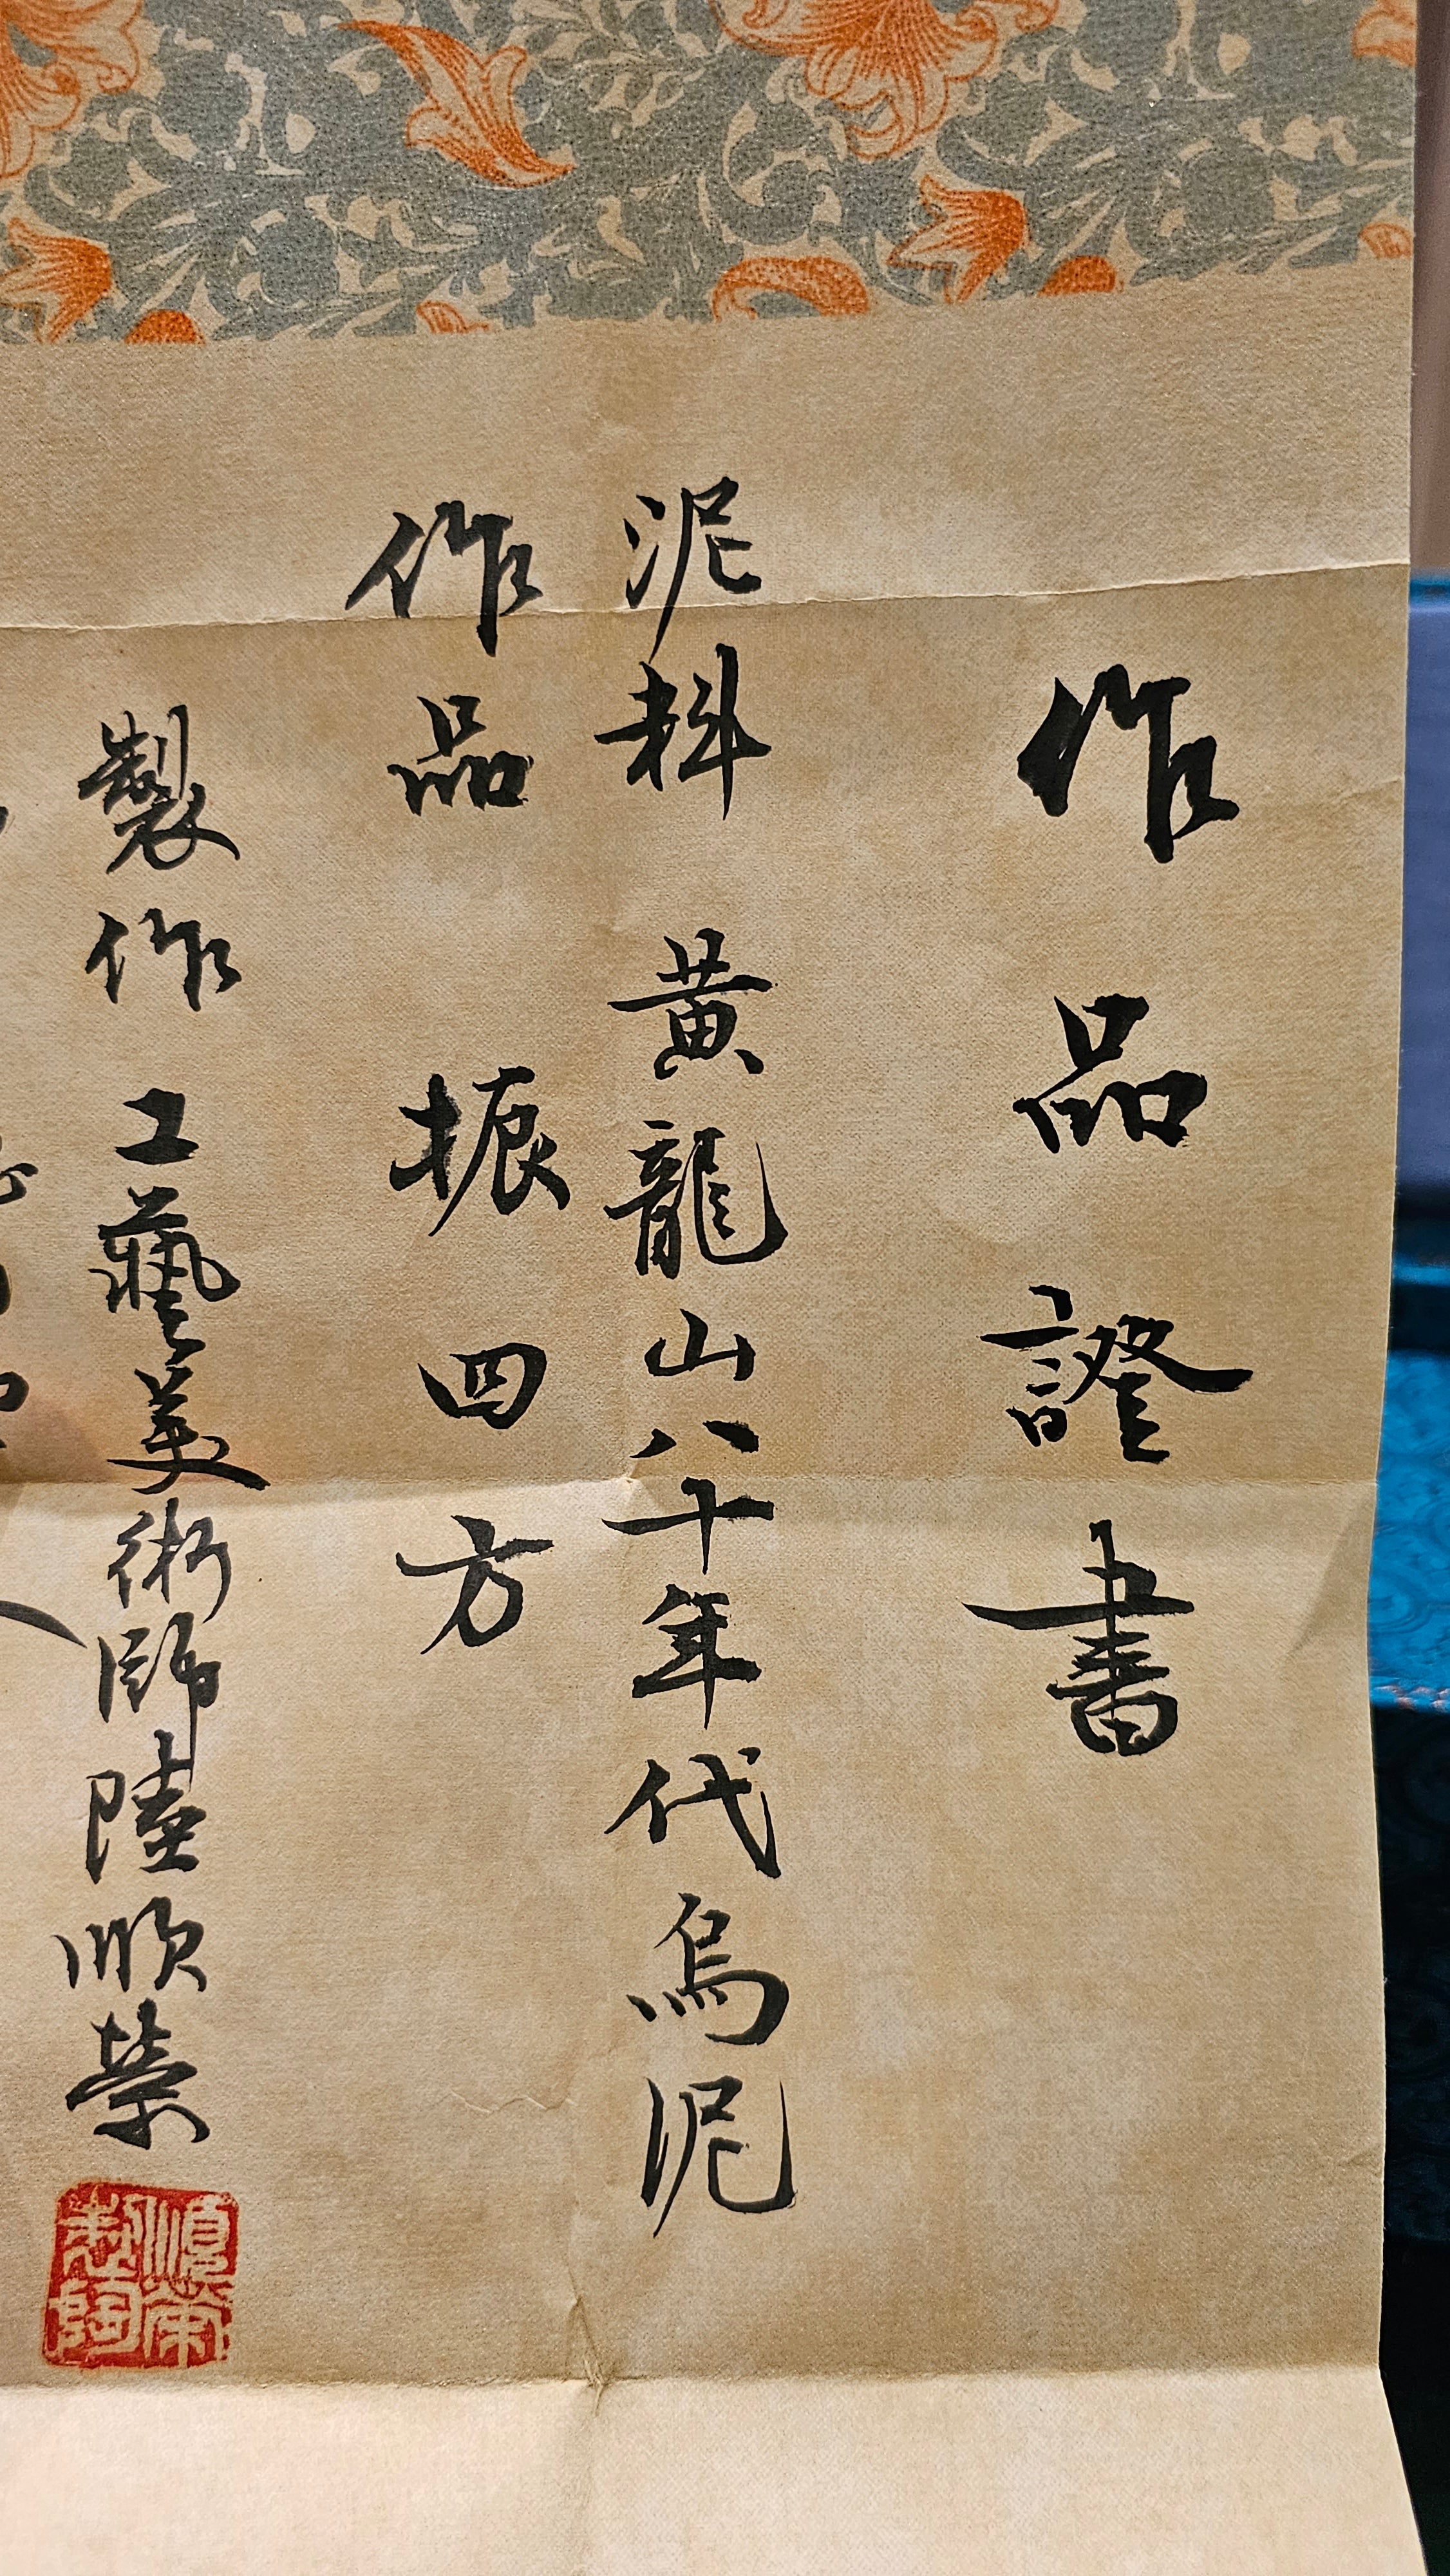 作品證書
泥料 黃龍山八十年代烏泥
作品 振四方
製作 工藝美術師陸順榮
順榮製陶